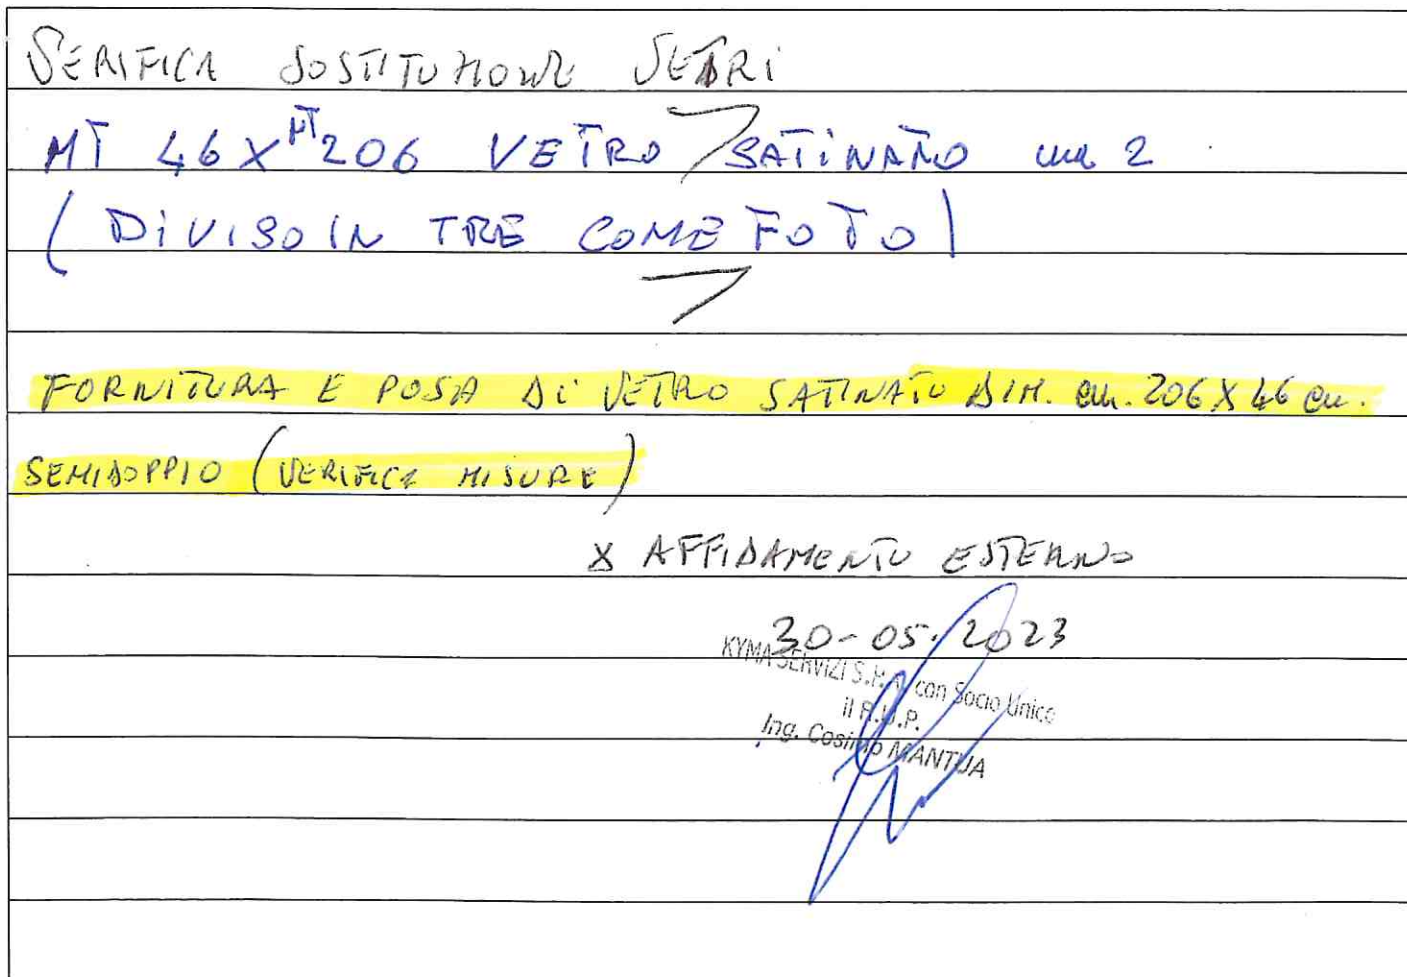 VERIFICA SOSTITUZIONE VETRI
MT 46 X MT 206 VETRO SATINATO mm 2
( DIVISO IN TRE COME FOTO )
FORNITURA E POSA DI VETRO SATINATO DIM. cm. 206 X 46 cm.
SEMIDOPPIO (VERIFICA MISURE)
X AFFIDAMENTO ESTERNO
30-05-2023
KYMA SERVIZI S.P.A. con Socio Unico
il R.U.P.
Ing. Cosimo MANTUA